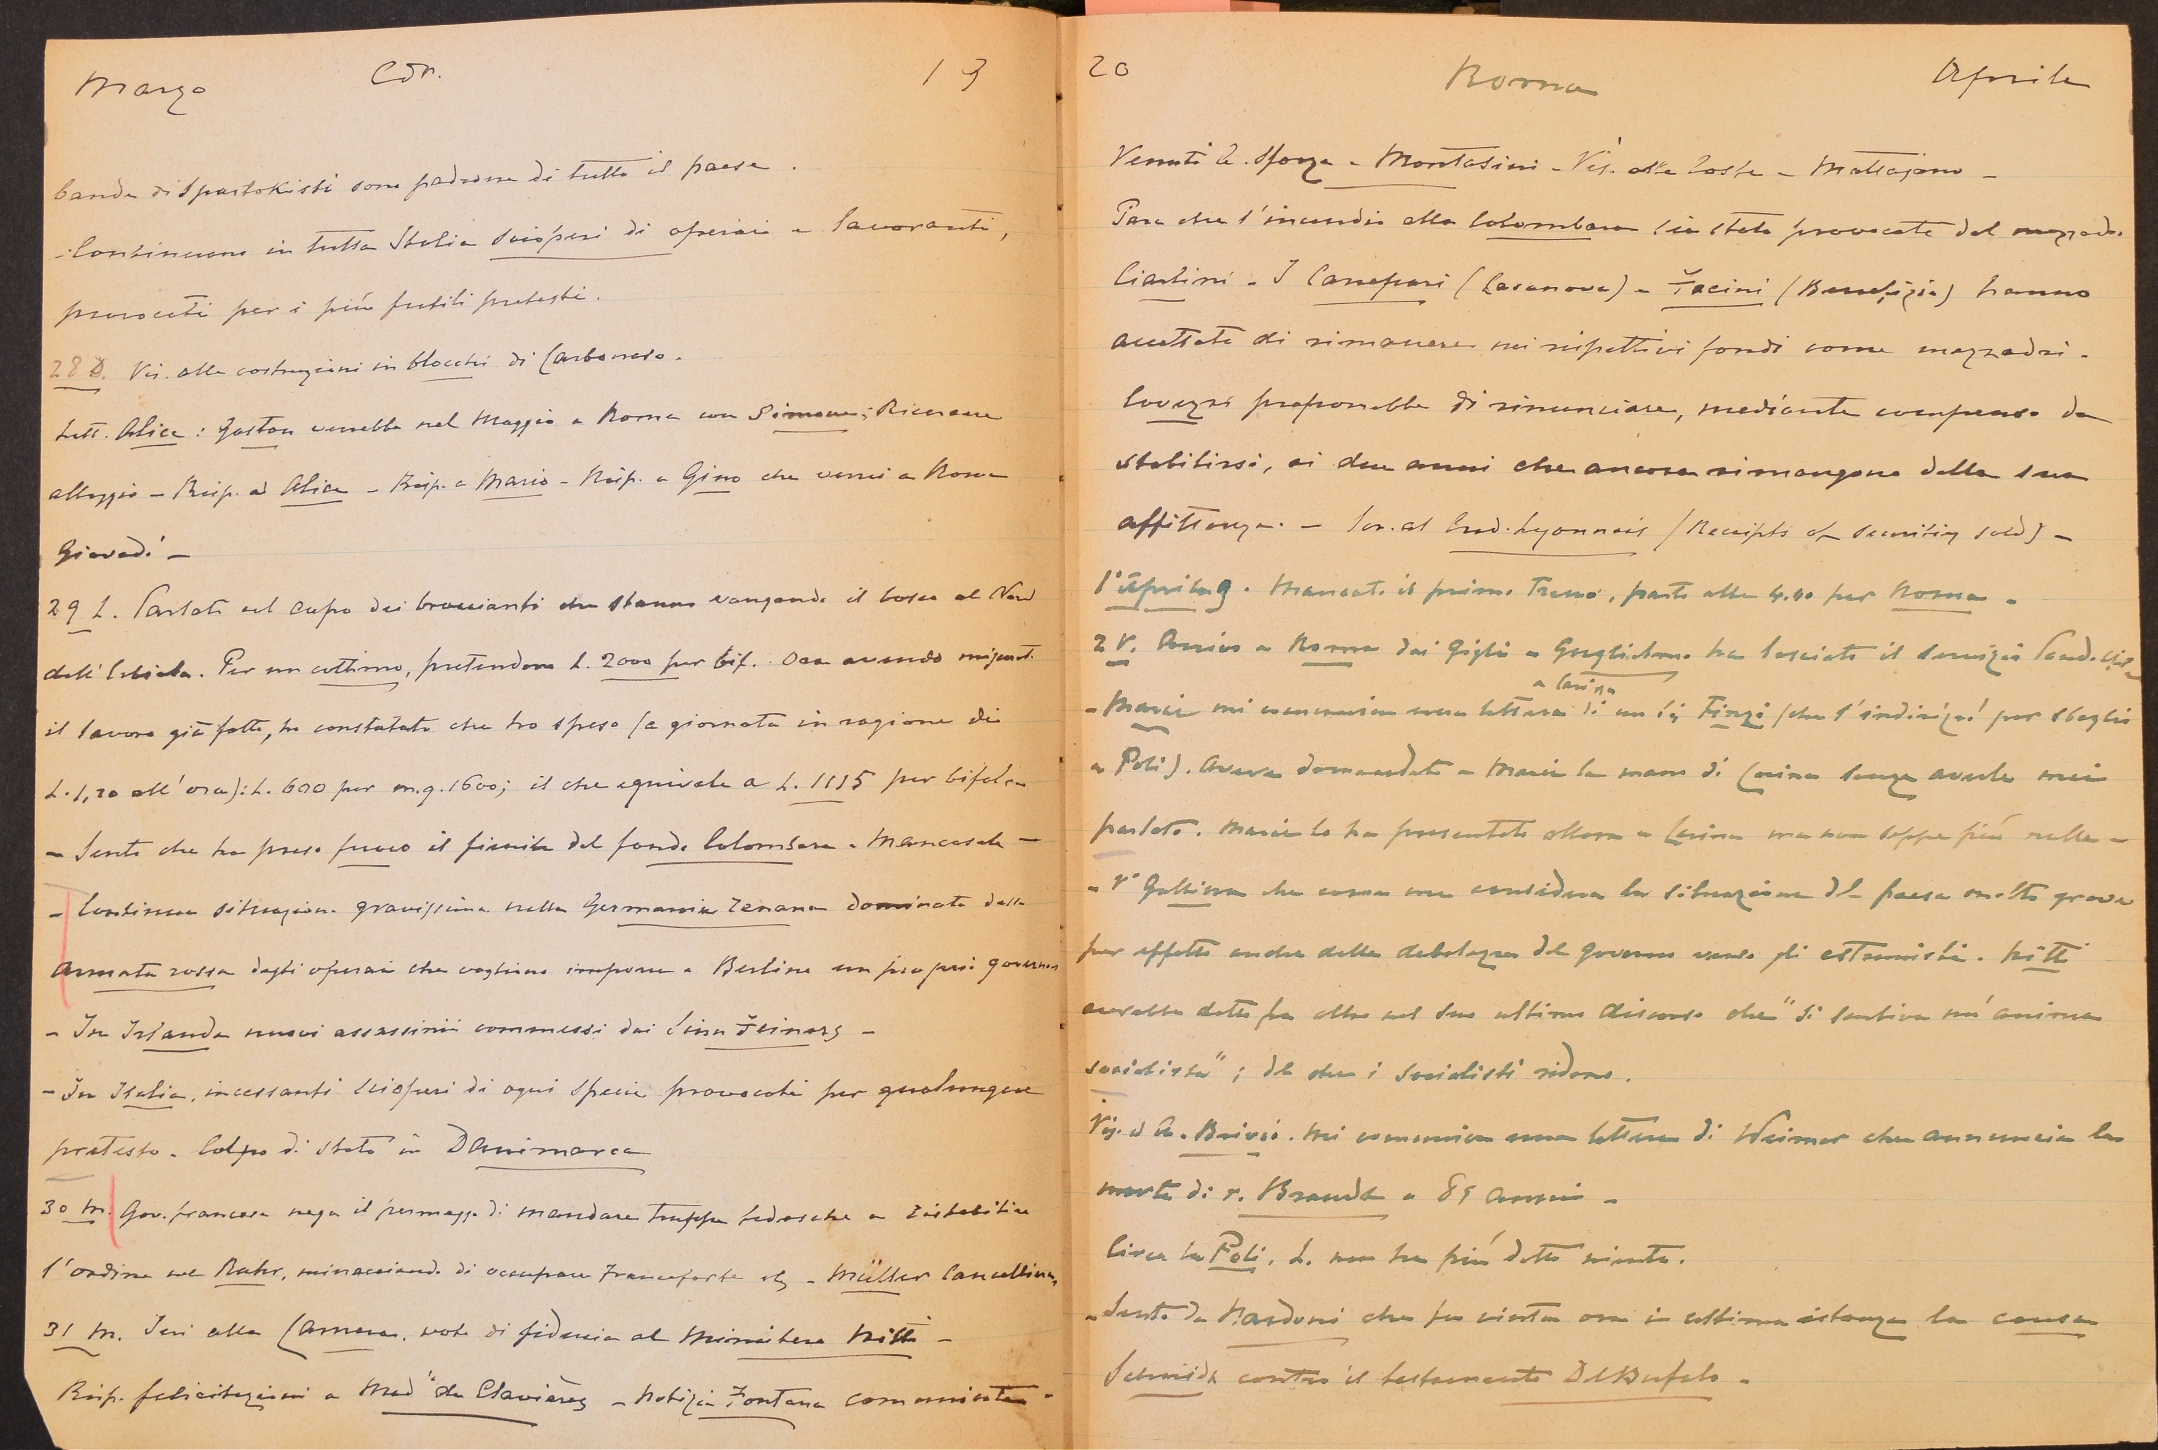 Marzo Cor. 19
bande di Spartakisti sono padrone di tutto il paese.
- Continuano in tutta Italia scioperi di operai e lavoranti,
provocati per i più futili pretesti.
28 D. Vis. alle costruzioni in blocchi di Carbonaso.
Lett. Alice: Gaston verrebbe nel Maggio a Roma con Simone; Ricercare
alloggio - Risp. ad Alice - Risp. a Mario - Risp. a Gino che verrei a Roma
Giovedì -
29 L. Parlato col capo dei braccianti che stanno vangando il bosco al Nord
dell' . Per un cottimo, pretendono L. 2000 per bif. Ora avendo misurato
il lavoro già fatto, ho constatato che ho speso (a giornata in ragione di
L. 1,20 all'ora): L. 600 per m.q. 1600; il che equivale a L. 1115 per bifolca
- Sento che ha preso fuoco il fienile del fondo Colombara a Mancasale -
- Continua situazione gravissima nella Germania renana dominata dalla
Armata rossa degli operai che vogliono imporre a Berlino un proprio governo
- In Irlanda nuovi assassinii commessi dai Sinn Feiners -
- In Italia, incessanti scioperi di ogni specie provocati per qualunque
pretesto. Colpo di stato in Danimarca
30 M. Gov. francese nega il permesso di mandare truppe tedesche a ristabilire
l'ordine nel Ruhr, minacciando di occupare Francoforte - Müller Cancelliere,
31 M. Ieri alla Camera, voto di fiducia al Ministero Nitti -
Risp. felicitazioni a Mad de Clavières - Notizia Fontana comunicata -
20 Roma Aprile
Venuti Sforza - Montasini - Vis. alle Coste - Mattajano -
Pare che l'incendio alla Colombara sia stato provocato dal mezzadro
Ciarlini - I Canepari (Casanova) e Facini (Benefizio) hanno
accettato di rimanere nei rispettivi fondi come mezzadri -
proporrebbe di rinunciare, mediante compenso da
stabilirsi, ai due anni che ancora rimangono della sua
affittanza. - Scr. al Cred. Lyonnais (Receipts of securities sold) -
1° Aprile G. Mancato il primo treno, parto alle 4.40 per Roma -
2 V. Arrivo a Roma dai Gigli - Guglielmo ha lasciato il servizio
a Carina
- Maria mi comunica una lettera di un Sig. Finzi (che s'indirizzò per sbaglio
a Poli). Aveva domandato a Maria la mano di Carina senza averle mai
parlato. Maria lo ha presentato allora a Carina ma non seppe più nulla -
- V° Gallina che come me considera la situazione del paese molto grave
per effetto anche della debolezza del governo verso gli estremisti. Nitti
avrebbe detto fra altro nel suo ultimo discorso che "si sentiva un'anima
socialista"; del che i socialisti ridono.
Vis. d A. Brivio. Mi comunica una lettera di Weimar che annuncia la
morte di r. Brandt a 85 anni -
Circa la Poli, L. non ha più detto niente.
- Sento da Nardoni che fu vinta ora in ultima istanza la causa
Schmidt contro il testamento Del Bufalo -